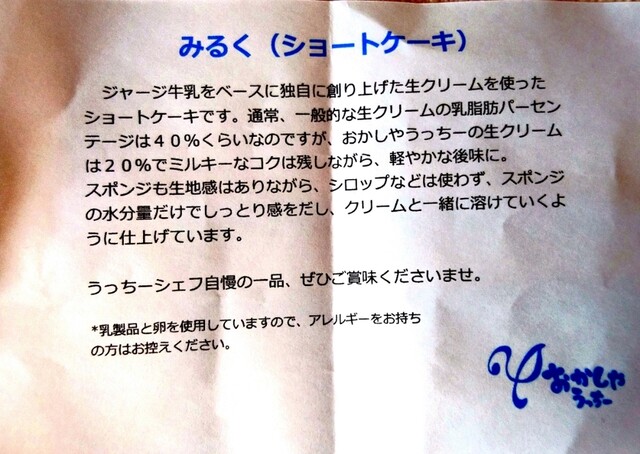 みるく（ショートケーキ）
ジャージ牛乳をベースに独自に創り上げた生クリームを使った
ショートケーキです。通常、一般的な生クリームの乳脂肪パーセン
テージは４０％くらいなのですが、おかしやうっちーの生クリーム
は２０％でミルキーなコクは残しながら、軽やかな後味に。
スポンジも生地感はありながら、シロップなどは使わず、スポンジ
の水分量だけでしっとり感をだし、クリームと一緒に溶けていくよ
うに仕上げています。
うっちーシェフ自慢の一品、ぜひご賞味くださいませ。
*乳製品と卵を使用していますので、アレルギーをお持ち
の方はお控えください。
おかしや
うっちー